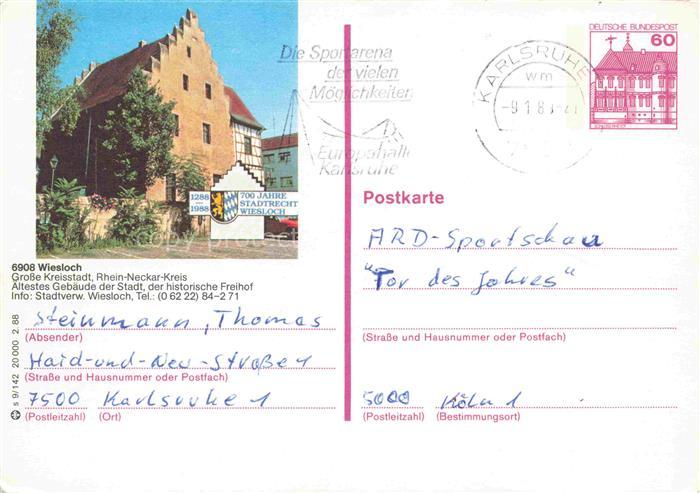 DEUTSCHE BUNDESPOST
60
KARLSRUHE
wm
Die Sportarena
der vielen
Möglichkeiten
Europahalle
Karlsruhe
1288
1988
700 JAHRE
STADTRECHT
WIESLOCH
6908 Wiesloch
Große Kreisstadt, Rhein-Neckar-Kreis
Ältestes Gebäude der Stadt, der historische Freihof
Info: Stadtverw. Wiesloch, Tel.: (0 62 22) 84-2 71
Steinmann, Thomas
(Absender)
Haid-und-Neu-Straße
(Straße und Hausnummer oder Postfach)
7500 Karlsruhe 1
(Postleitzahl) (Ort)
s 9/142 20 000 2.88
Postkarte
ARD-Sportschau
"Tor des Jahres"
(Straße und Hausnummer oder Postfach)
5000 Köln 1
(Postleitzahl) (Bestimmungsort)